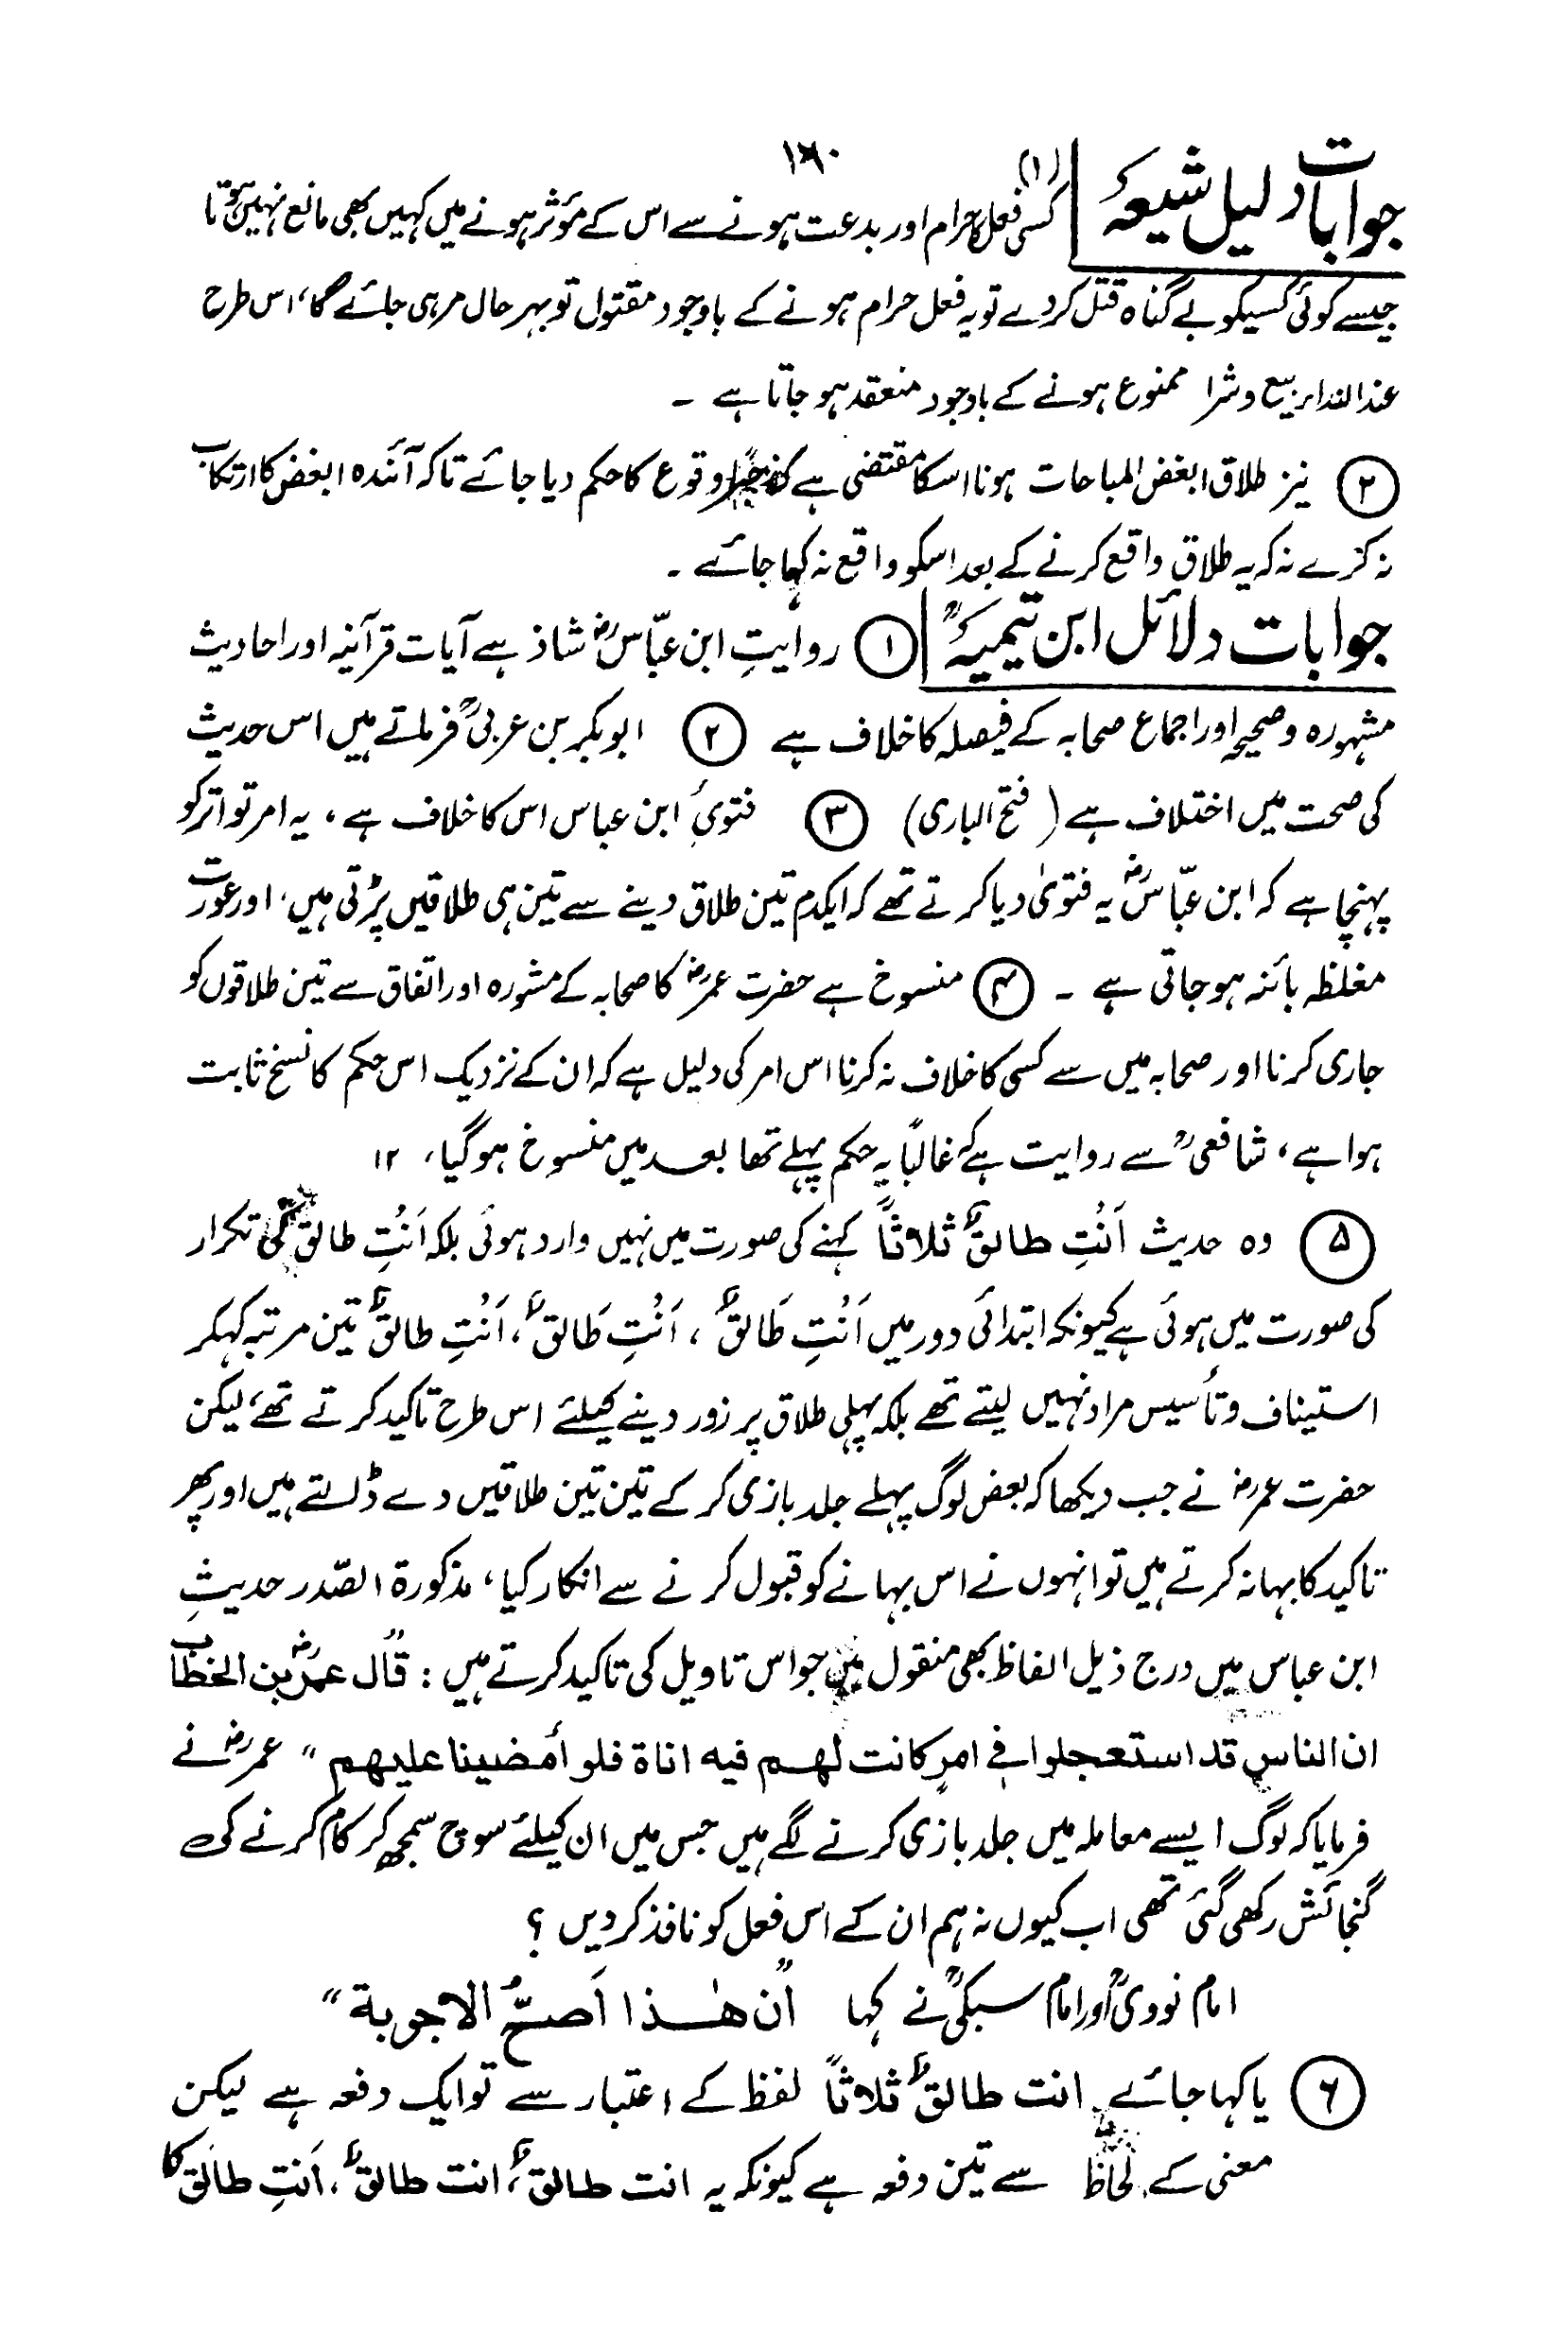 ۱۶۰
جوابات دلیل شیعہ (۱) کسی فعل کا حرام اور بدعت ہونے سے اس کے مؤثر ہونے میں کہیں بھی مانع نہیں ہوتا
جیسے کوئی کسیکو بے گناہ قتل کردے تو یہ فعل حرام ہونے کے باوجود مقتول تو بہر حال مر ہی جائے گا، اس طرح
عند النداء بیع و شرا ممنوع ہونے کے باوجود منعقد ہو جاتا ہے ۔
(۲) نیز طلاق ابغض المباحات ہونا اسکا مقتضی ہے کہ وقوع کا حکم دیا جائے تاکہ آئندہ ابغض کا ارتکاب
نہ کرے نہ کہ یہ طلاق واقع کرنے کے بعد اسکو واقع نہ کہا جائے ۔
جوابات دلائل ابن تیمیہؒ (۱) روایتِ ابن عبّاسؓ شاذ ہے آیات قرآنیہ اور احادیث
مشہورہ و صحیحہ اور اجماع صحابہ کے فیصلہ کا خلاف ہے (۲) ابوبکر بن عربیؒ فرماتے ہیں اس حدیث
کی صحت میں اختلاف ہے (فتح الباری) (۳) فتویٔ ابن عباس اس کا خلاف ہے، یہ امر تواتر کو
پہنچا ہے کہ ابن عبّاسؓ یہ فتویٰ دیا کرتے تھے کہ ایکدم تین طلاق دینے سے تین ہی طلاقیں پڑتی ہیں، اور عورت
مغلظہ بائنہ ہو جاتی ہے ۔ (۴) منسوخ ہے حضرت عمرؓ کا صحابہ کے مشورہ اور اتفاق سے تین طلاقوں کو
جاری کرنا اور صحابہ میں سے کسی کا خلاف نہ کرنا اس امر کی دلیل ہے کہ ان کے نزدیک اس حکم کا نسخ ثابت
ہوا ہے، شافعیؒ سے روایت ہے کہ غالباً یہ حکم پہلے تھا بعد میں منسوخ ہوگیا، ۱۲
(۵) وہ حدیث اَنْتِ طالقٌ ثلاثاً کہنے کی صورت میں نہیں وارد ہوئی بلکہ اَنْتِ طالقٌ کی تکرار
کی صورت میں ہوئی ہے کیونکہ ابتدائی دور میں اَنْتِ طَالقٌ، اَنْتِ طَالقٌ، اَنْتِ طالقٌ تین مرتبہ کہکر
استیناف و تأسیس مراد نہیں لیتے تھے بلکہ پہلی طلاق پر زور دینے کیلئے اس طرح تاکید کرتے تھے، لیکن
حضرت عمرؓ نے جب دیکھا کہ بعض لوگ پہلے جلد بازی کر کے تین تین طلاقیں دے ڈالتے ہیں اور پھر
تاکید کا بہانہ کرتے ہیں تو انہوں نے اس بہانے کو قبول کرنے سے انکار کیا، مذکورۃ الصّدر حدیثِ
ابن عباس میں درج ذیل الفاظ بھی منقول ہیں جو اس تاویل کی تاکید کرتے ہیں : قال عمرؓ بن الخطّاب
ان الناس قد استعجلوا فی امر کانت لهم فیه اناة فلو أمضینا علیهم " عمرؓ نے
فرمایا کہ لوگ ایسے معاملہ میں جلد بازی کرنے لگے ہیں جس میں ان کیلئے سوچ سمجھ کر کام کرنے کی
گنجائش رکھی گئی تھی اب کیوں نہ ہم ان کے اس فعل کو نافذ کردیں ؟
امام نوویؒ اور امام سبکیؒ نے کہا "ان هٰذا اَصحُّ الاجوبة"
(۶) یا کہا جائے انت طالقٌ ثلاثاً لفظ کے اعتبار سے تو ایک دفعہ ہے لیکن
معنی کے لحاظ سے تین دفعہ ہے کیونکہ یہ انت طالقٌ، انت طالقٌ، اَنتِ طالَق کا